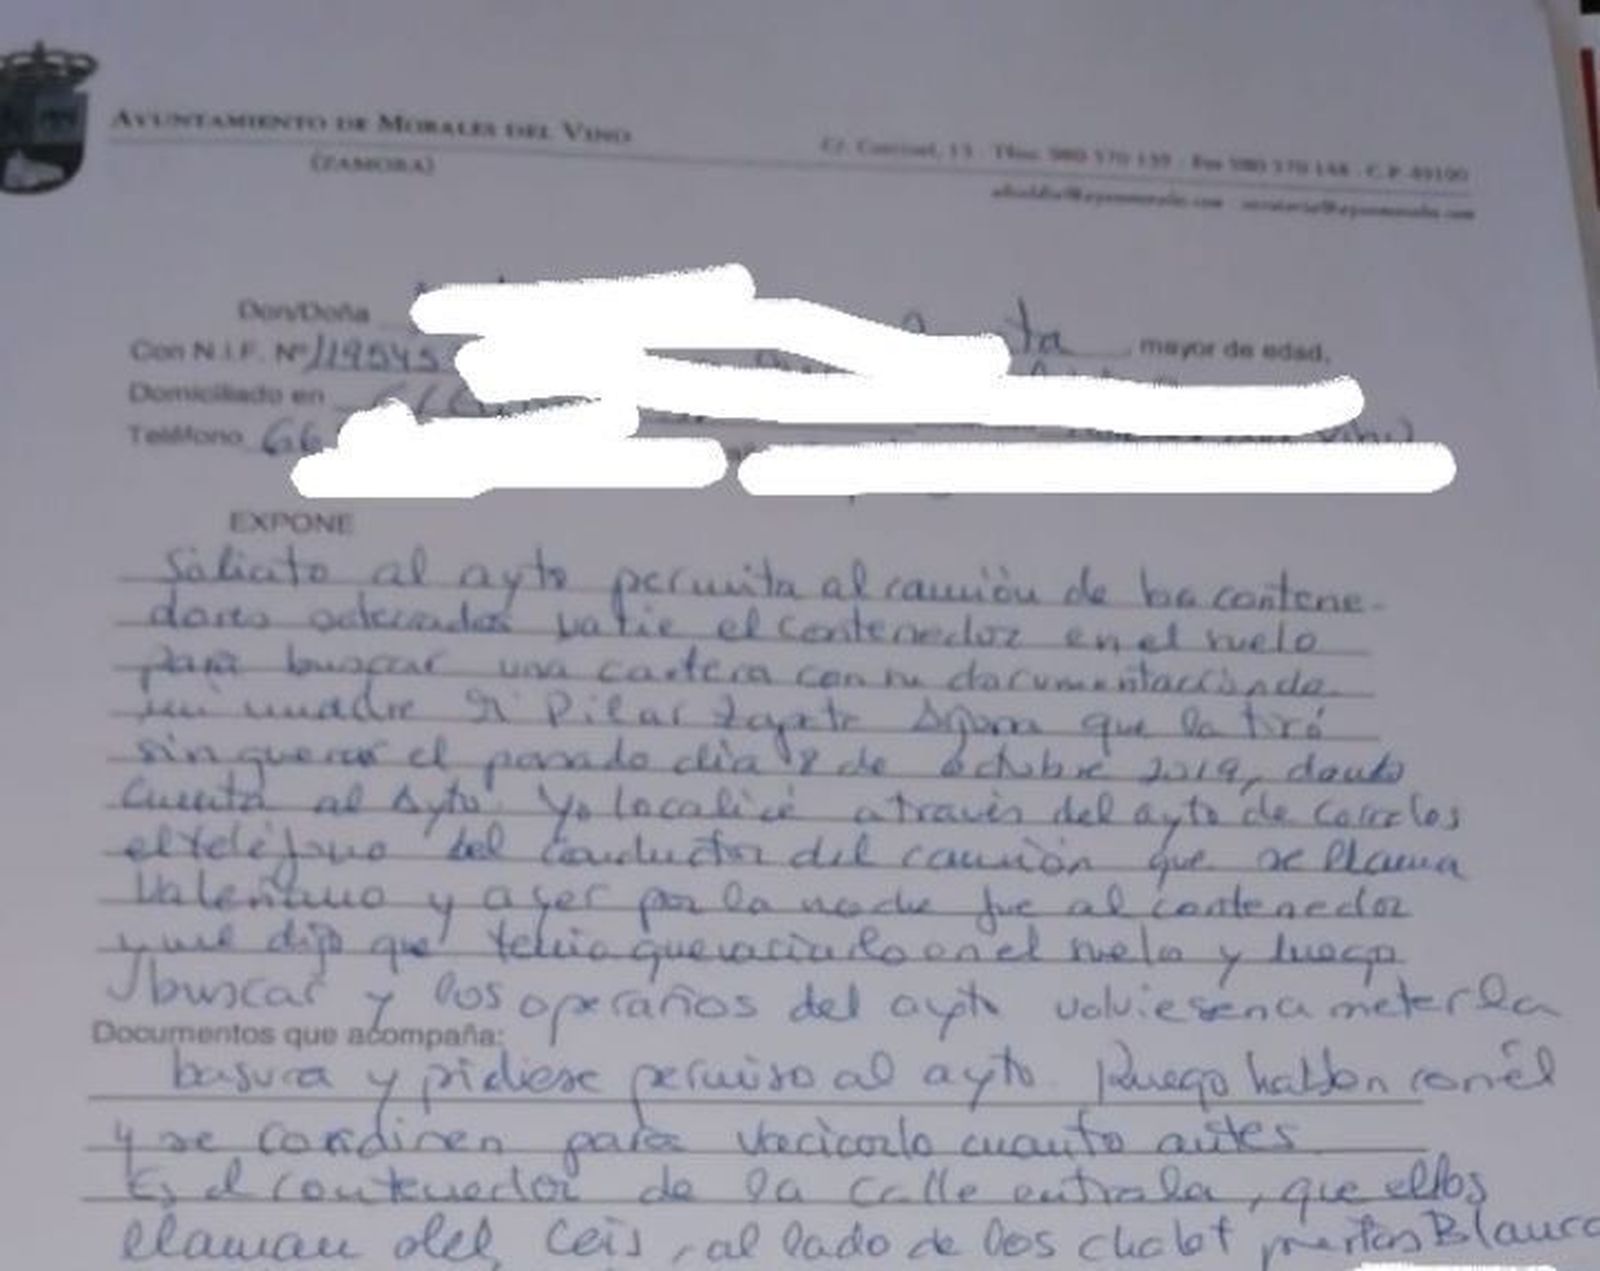 AYUNTAMIENTO DE MORALES DEL VINO
(ZAMORA)
Don/Doña ta mayor de edad,
Con N.I.F. Nº 119545
Domiciliado en
Teléfono 66
EXPONE
Solicito al ayto permita al camión de los contene-
dores soterrados vacíe el contenedor en el suelo
para buscar una cartera con su documentación de
mi madre Sª Pilar que la tiró
sin querer el pasado día 8 de octubre 2019, dando
cuenta al Ayto. Yo localicé a través del ayto de
el teléfono del conductor del camión que se llama
Valentino y ayer por la noche fue al contenedor
y me dijo que tenía que vaciarlo en el suelo y luego
buscar y los operarios del ayto volviesen a meter la
Documentos que acompaña:
basura y pidiese permiso al ayto. Ruego hablen con él
y se cordinen para vaciarlo cuanto antes
Es el contenedor de la calle entrala, que ellos
llaman del Ceis, al lado de los chalet puertas Blanca